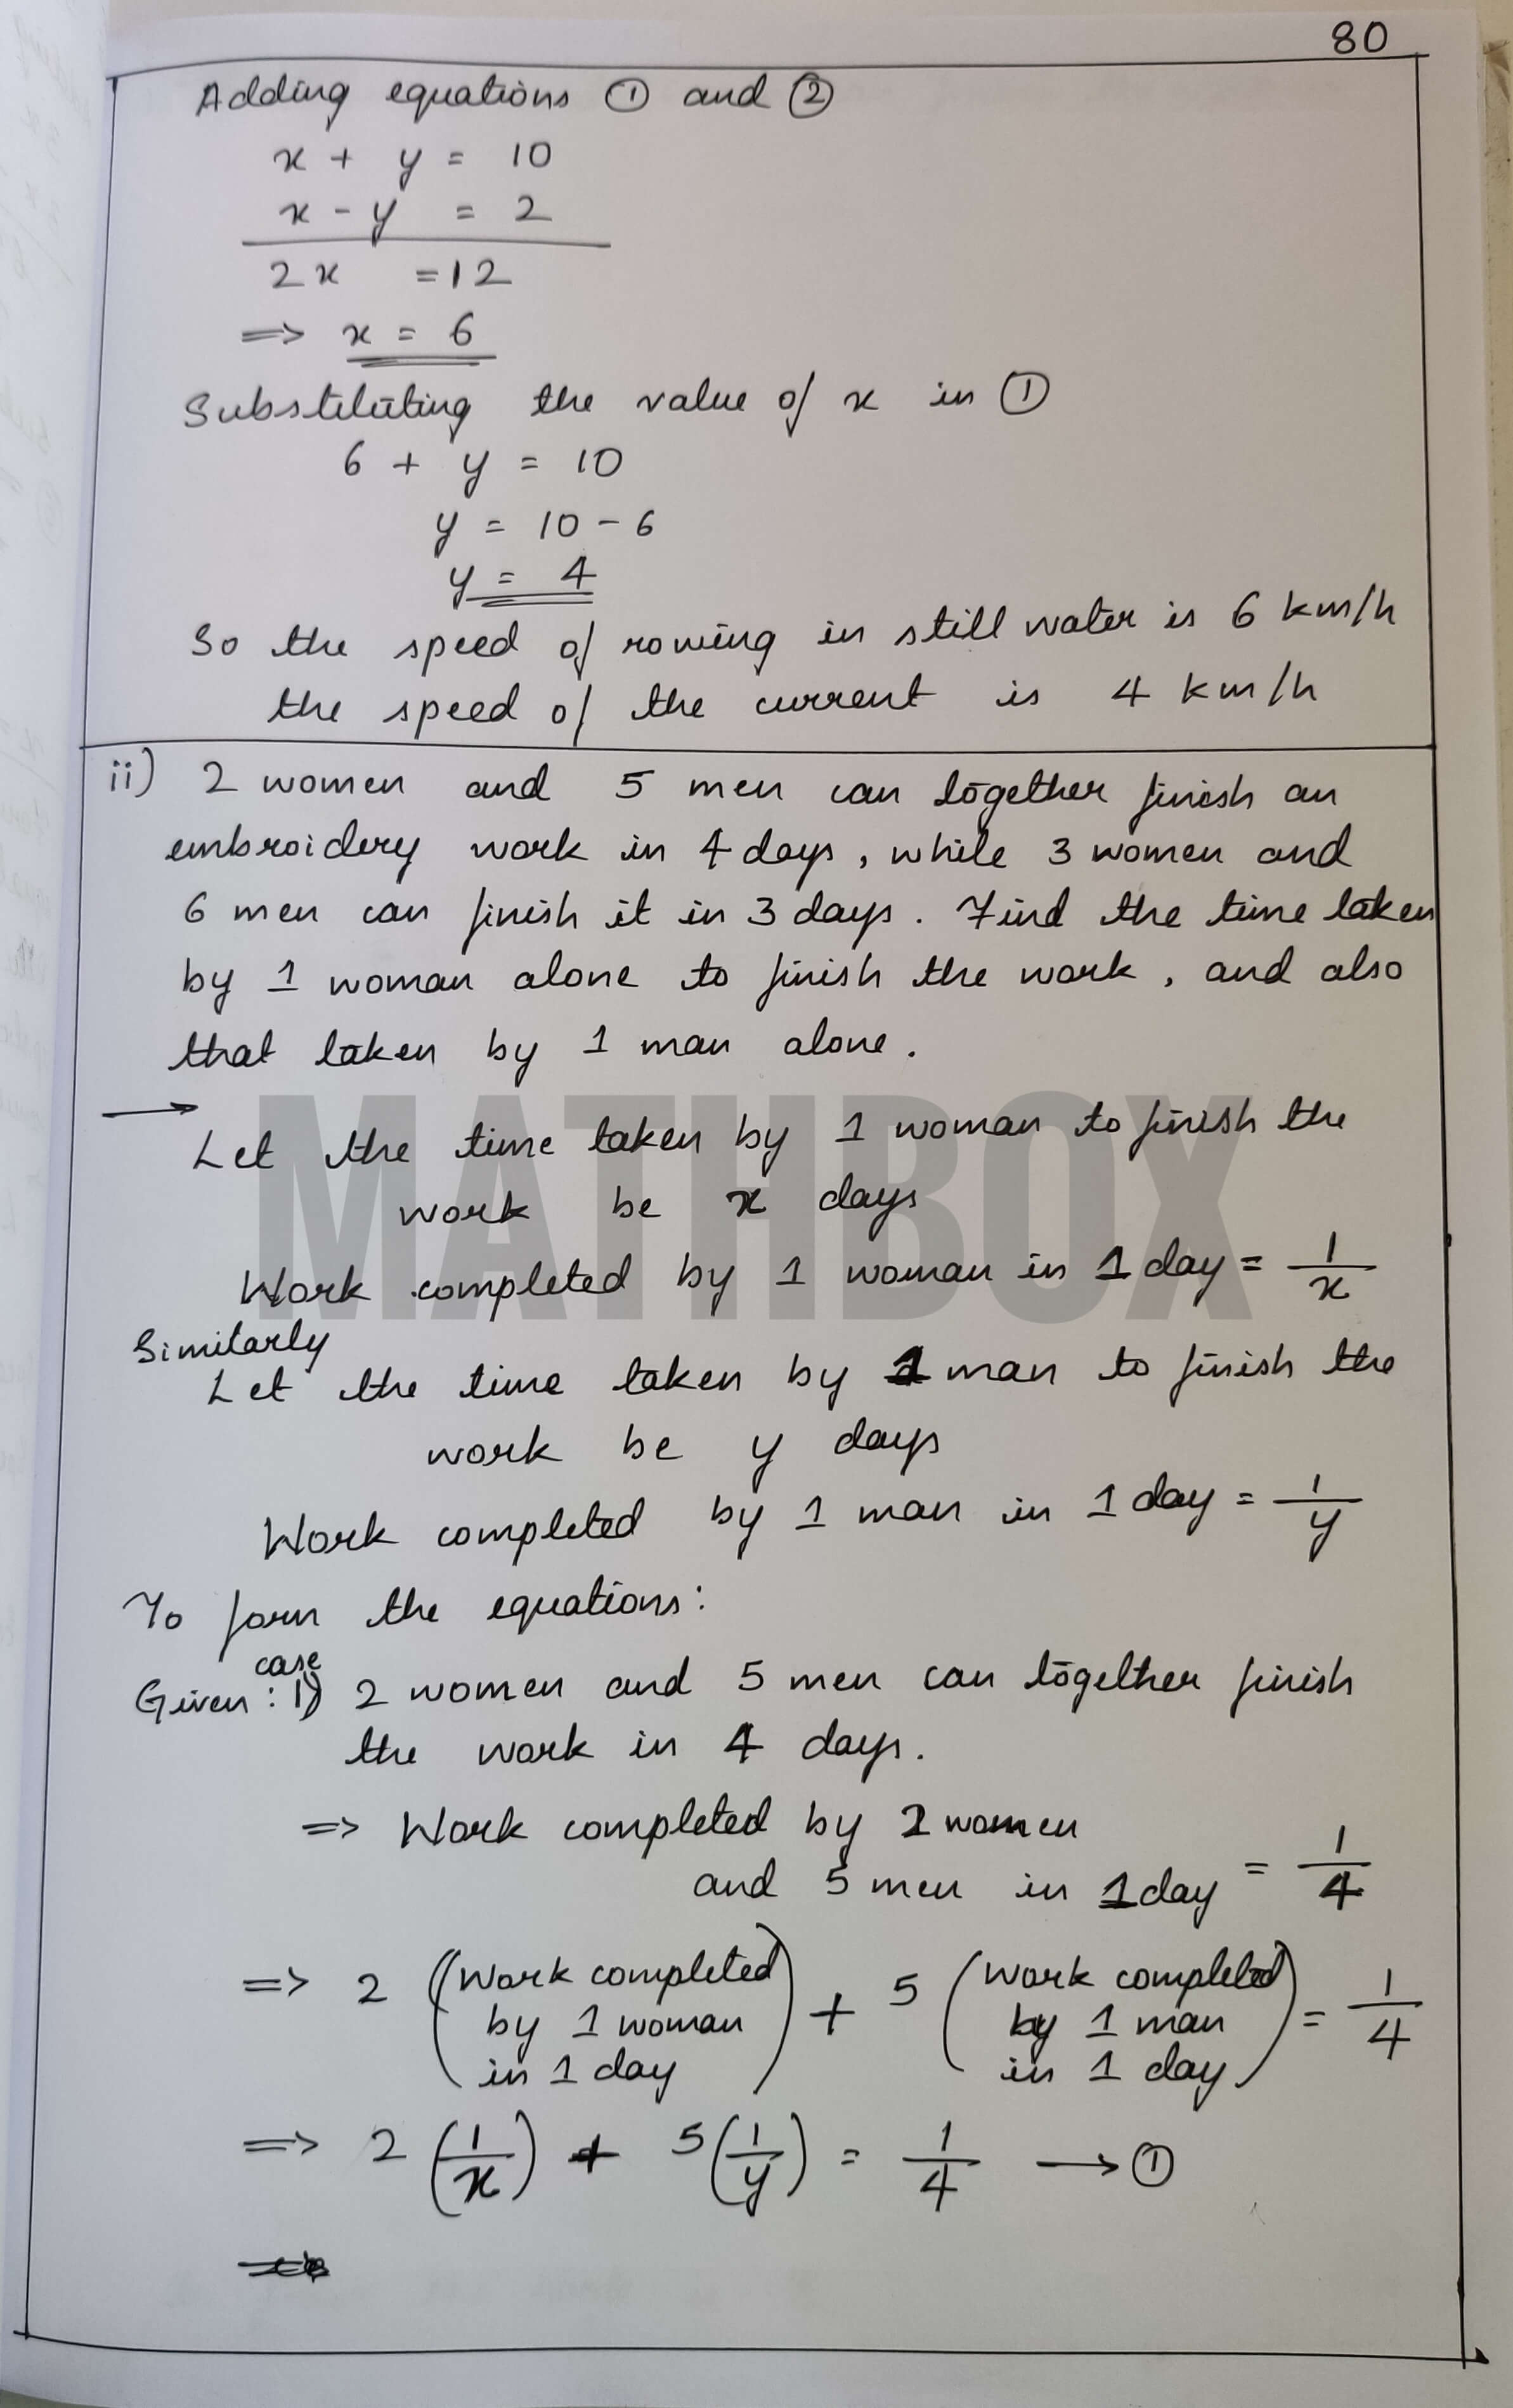 80
Adding equations ① and ②
x + y = 10
x - y = 2
2x = 12
=> x = 6
Substituting the value of x in ①
6 + y = 10
y = 10 - 6
y = 4
So the speed of rowing in still water is 6 km/h
the speed of the current is 4 km/h
ii) 2 women and 5 men can together finish an
embroidery work in 4 days, while 3 women and
6 men can finish it in 3 days. Find the time taken
by 1 woman alone to finish the work, and also
that taken by 1 man alone.
→
Let the time taken by 1 woman to finish the
work be x days
MATHBOX
Work completed by 1 woman in 1 day = 1/x
Similarly
Let the time taken by 1 man to finish the
work be y days
Work completed by 1 man in 1 day = 1/y
To form the equations:
case
Given: 1) 2 women and 5 men can together finish
the work in 4 days.
=> Work completed by 2 women
and 5 men in 1 day = 1/4
=> 2 (Work completed + 5 (Work completed = 1/4
by 1 woman by 1 man
in 1 day) in 1 day)
=> 2 (1/x) + 5 (1/y) = 1/4 → ①